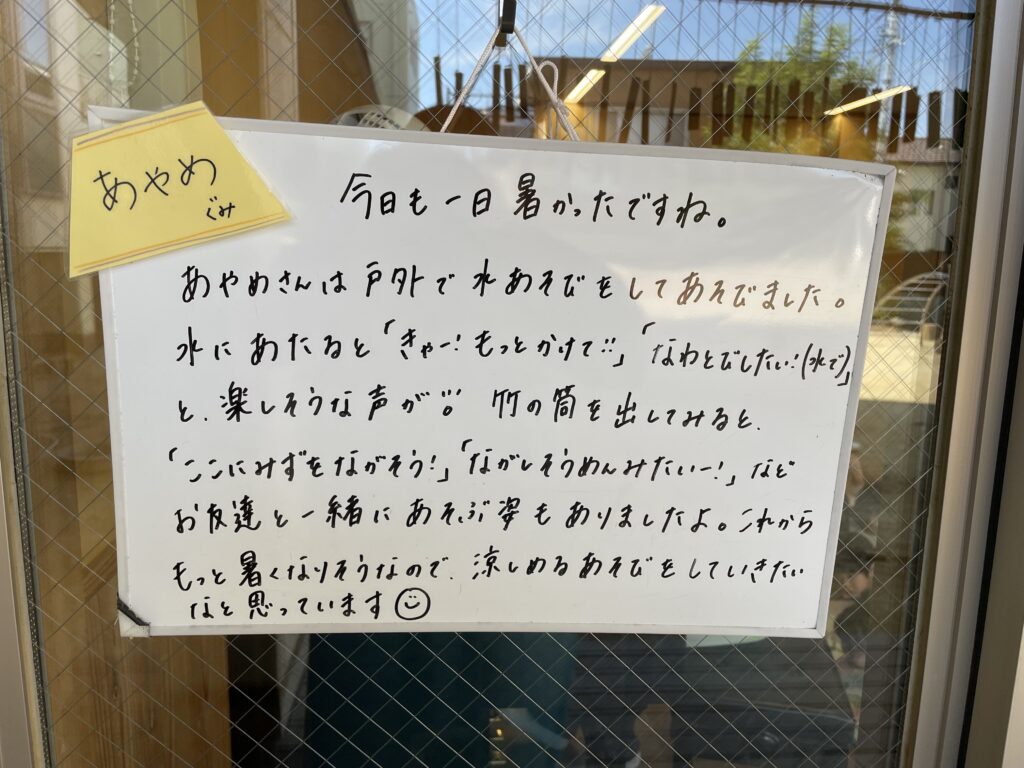 あやめ
ぐみ
今日も一日暑かったですね。
あやめさんは戸外で水あそびをしてあそびました。
水にあたると「きゃー!もっとかけて!!」「なわとびしたい!(水で)」
と、楽しそうな声が!!! 竹の筒を出してみると、
「ここにみずをながそう!」「ながしそうめんみたいー!」など
お友達と一緒にあそぶ姿もありましたよ。これから
もっと暑くなりそうなので、涼しめるあそびをしていきたい
なと思っています